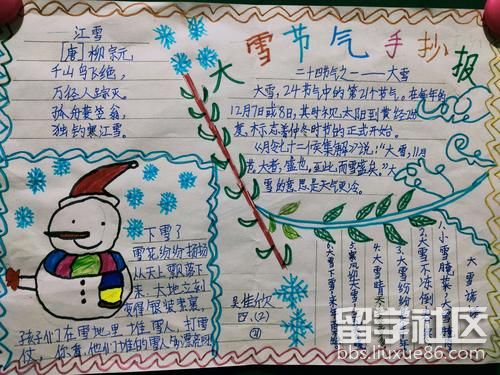 大雪节气手抄报
江雪
[唐]柳宗元
千山鸟飞绝,
万径人踪灭
孤舟蓑笠翁,
独钓寒江雪。
二十四节气之一——大雪
大雪,24节气中的第21个节气。在每年的
12月7日或8日,其时视太阳到黄经255
度。标志着仲冬时节的正式开始。
《月令七十二候集解》说:"大雪,11月
大者,盛也,至此而雪盛矣。"大
雪的意思是天气更冷。
下雪了
雪花纷纷扬扬
从天上飘落下
来,大地立刻
银装素裹。
孩子们在雪地里堆雪人、打雪
仗,你看,他们堆的雪人多漂亮呀
吴佳欣
四.(2)
21
大雪谚
1.小雪腌菜,大雪腌
2.大雪不冻倒
3.大雪纷纷
4.大雪晴天
留学社区
bbs.liuxue86.com